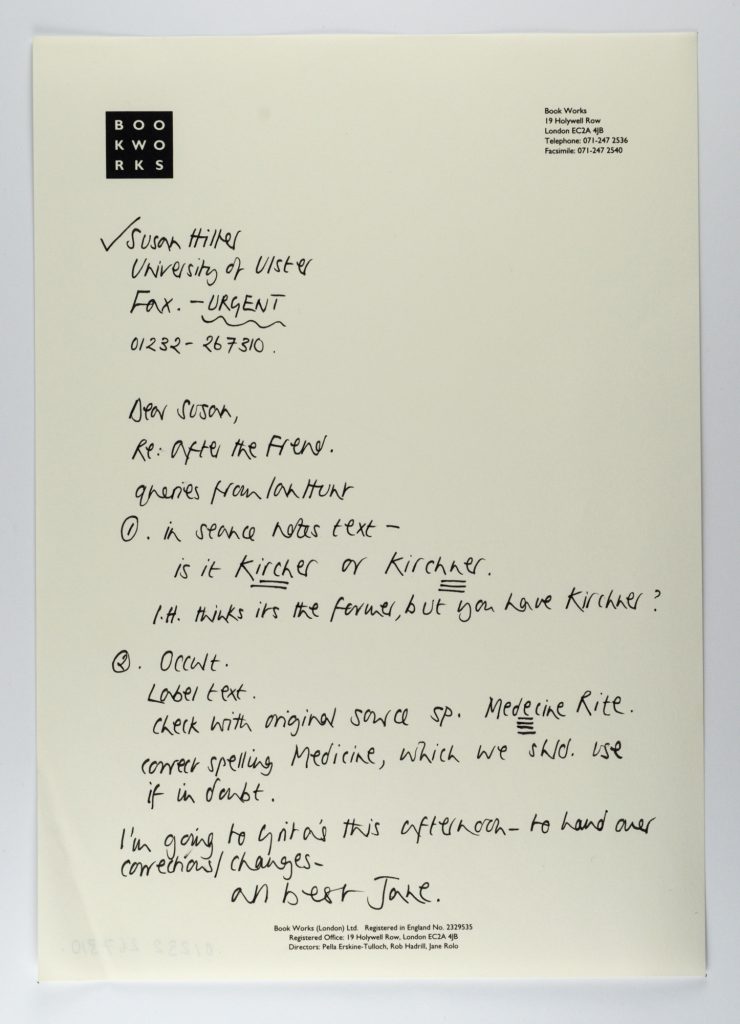 BOO
KWO
RKS
Book Works
19 Holywell Row
London EC2A 4JB
Telephone: 071-247 2536
Facsimile: 071-247 2540
✓ Susan Hiller
University of Ulster
Fax. – URGENT
01232 - 267310.
Dear Susan,
Re: After the Freud.
queries from Ian Hunt
①. in seance notes text –
is it Kircher or Kirchner.
I.H. thinks its the former, but you have Kirchner?
②. Occult.
Label text.
check with original source sp. Medecine Rite.
correct spelling Medicine, which we shld. use
if in doubt.
I'm going to Grita's this afternoon – to hand over
corrections/changes –
all best Jane.
Book Works (London) Ltd. Registered in England No. 2329535
Registered Office: 19 Holywell Row, London EC2A 4JB
Directors: Pella Erskine-Tulloch, Rob Hadrill, Jane Rolo
01232 267310